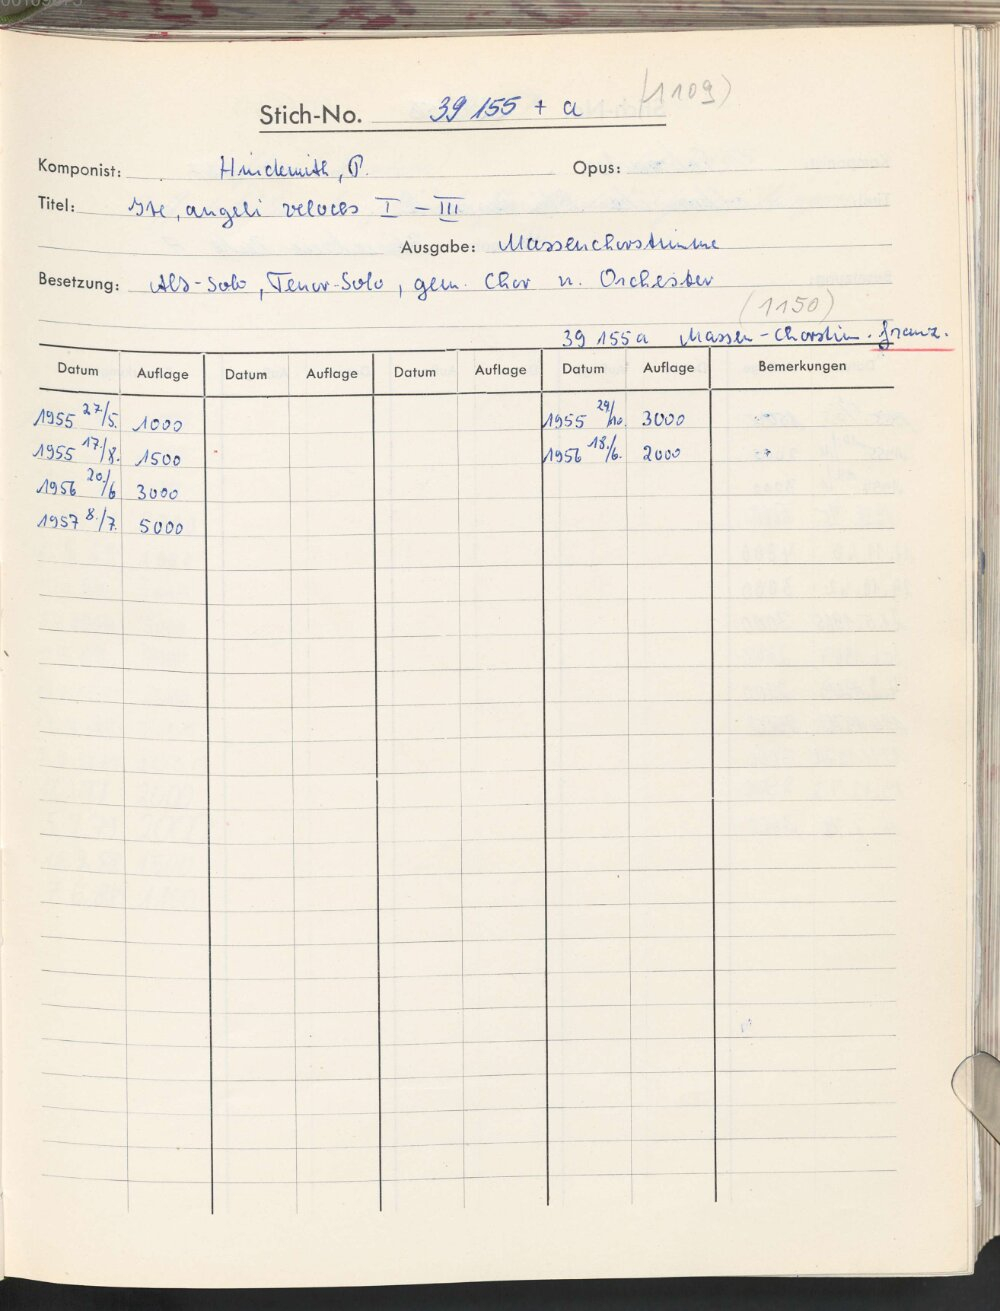 (1109)
Stich-No. 39 155 + a
Komponist: Hindemith, P. Opus:
Titel: Ite, angeli veloces I – III
Ausgabe: Massenchorstimme
Besetzung: Alt-Solo, Tenor-Solo, gem. Chor u. Orchester
(1150)
39 155a Massen-Chorstim. franz.
Datum Auflage Datum Auflage Datum Auflage Datum Auflage Bemerkungen
1955 27/5. 1000 1955 24/10. 3000
1955 17./8. 1500 1956 18./6. 2000
1956 20./6 3000
1957 8./7. 5000